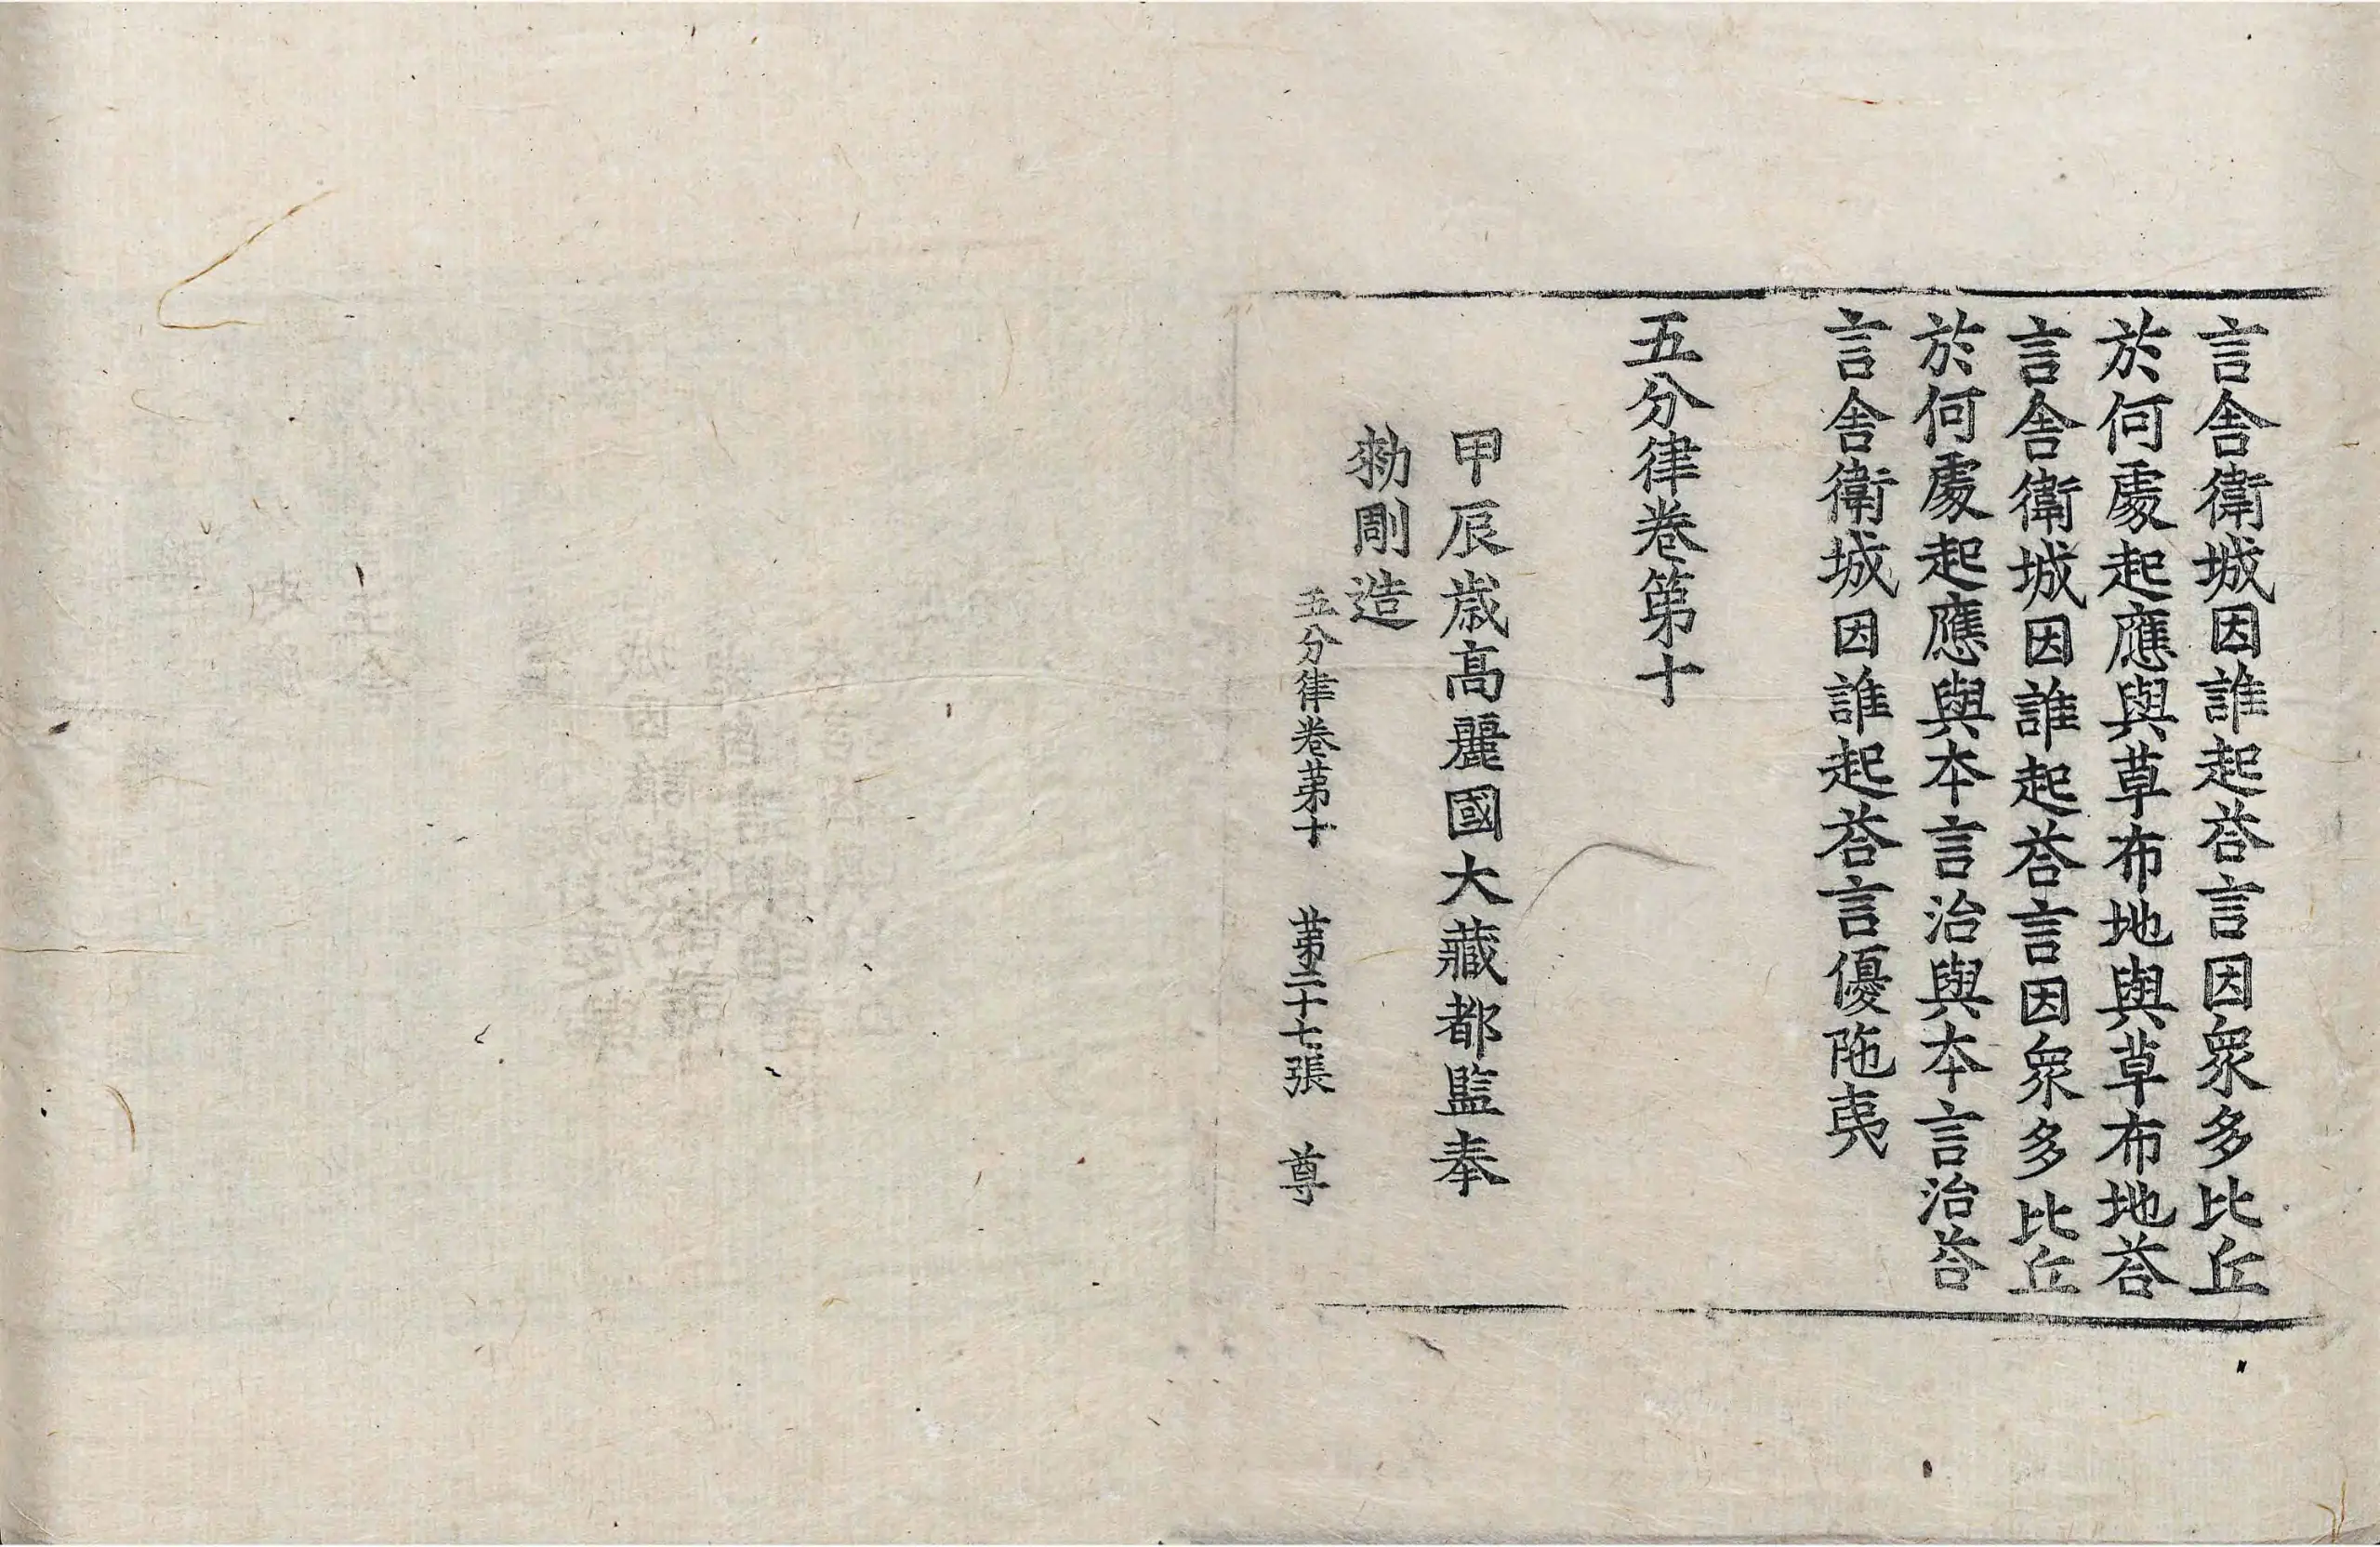 言舍衛城因誰起荅言因衆多比丘
於何處起應與草布地與草布地荅
言舍衛城因誰起荅言因衆多比丘
於何處起應與本言治與本言治荅
言舍衛城因誰起荅言優陁夷
五分律卷第十
甲辰歲高麗國大藏都監奉
勑彫造
五分律卷第十 第二十七張 尊